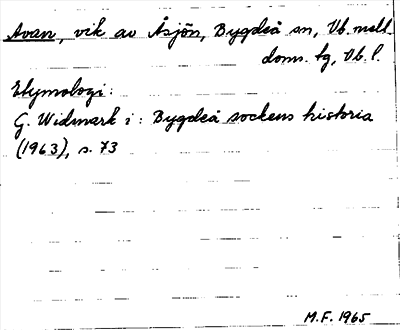 Avan, vik av Åsjön, Bygdeå sn, Vb. mell.
doms. tg, Vb. l.
Etymologi:
G. Widmark i: Bygdeå sockens historia
(1963), s. 73
M.F. 1965